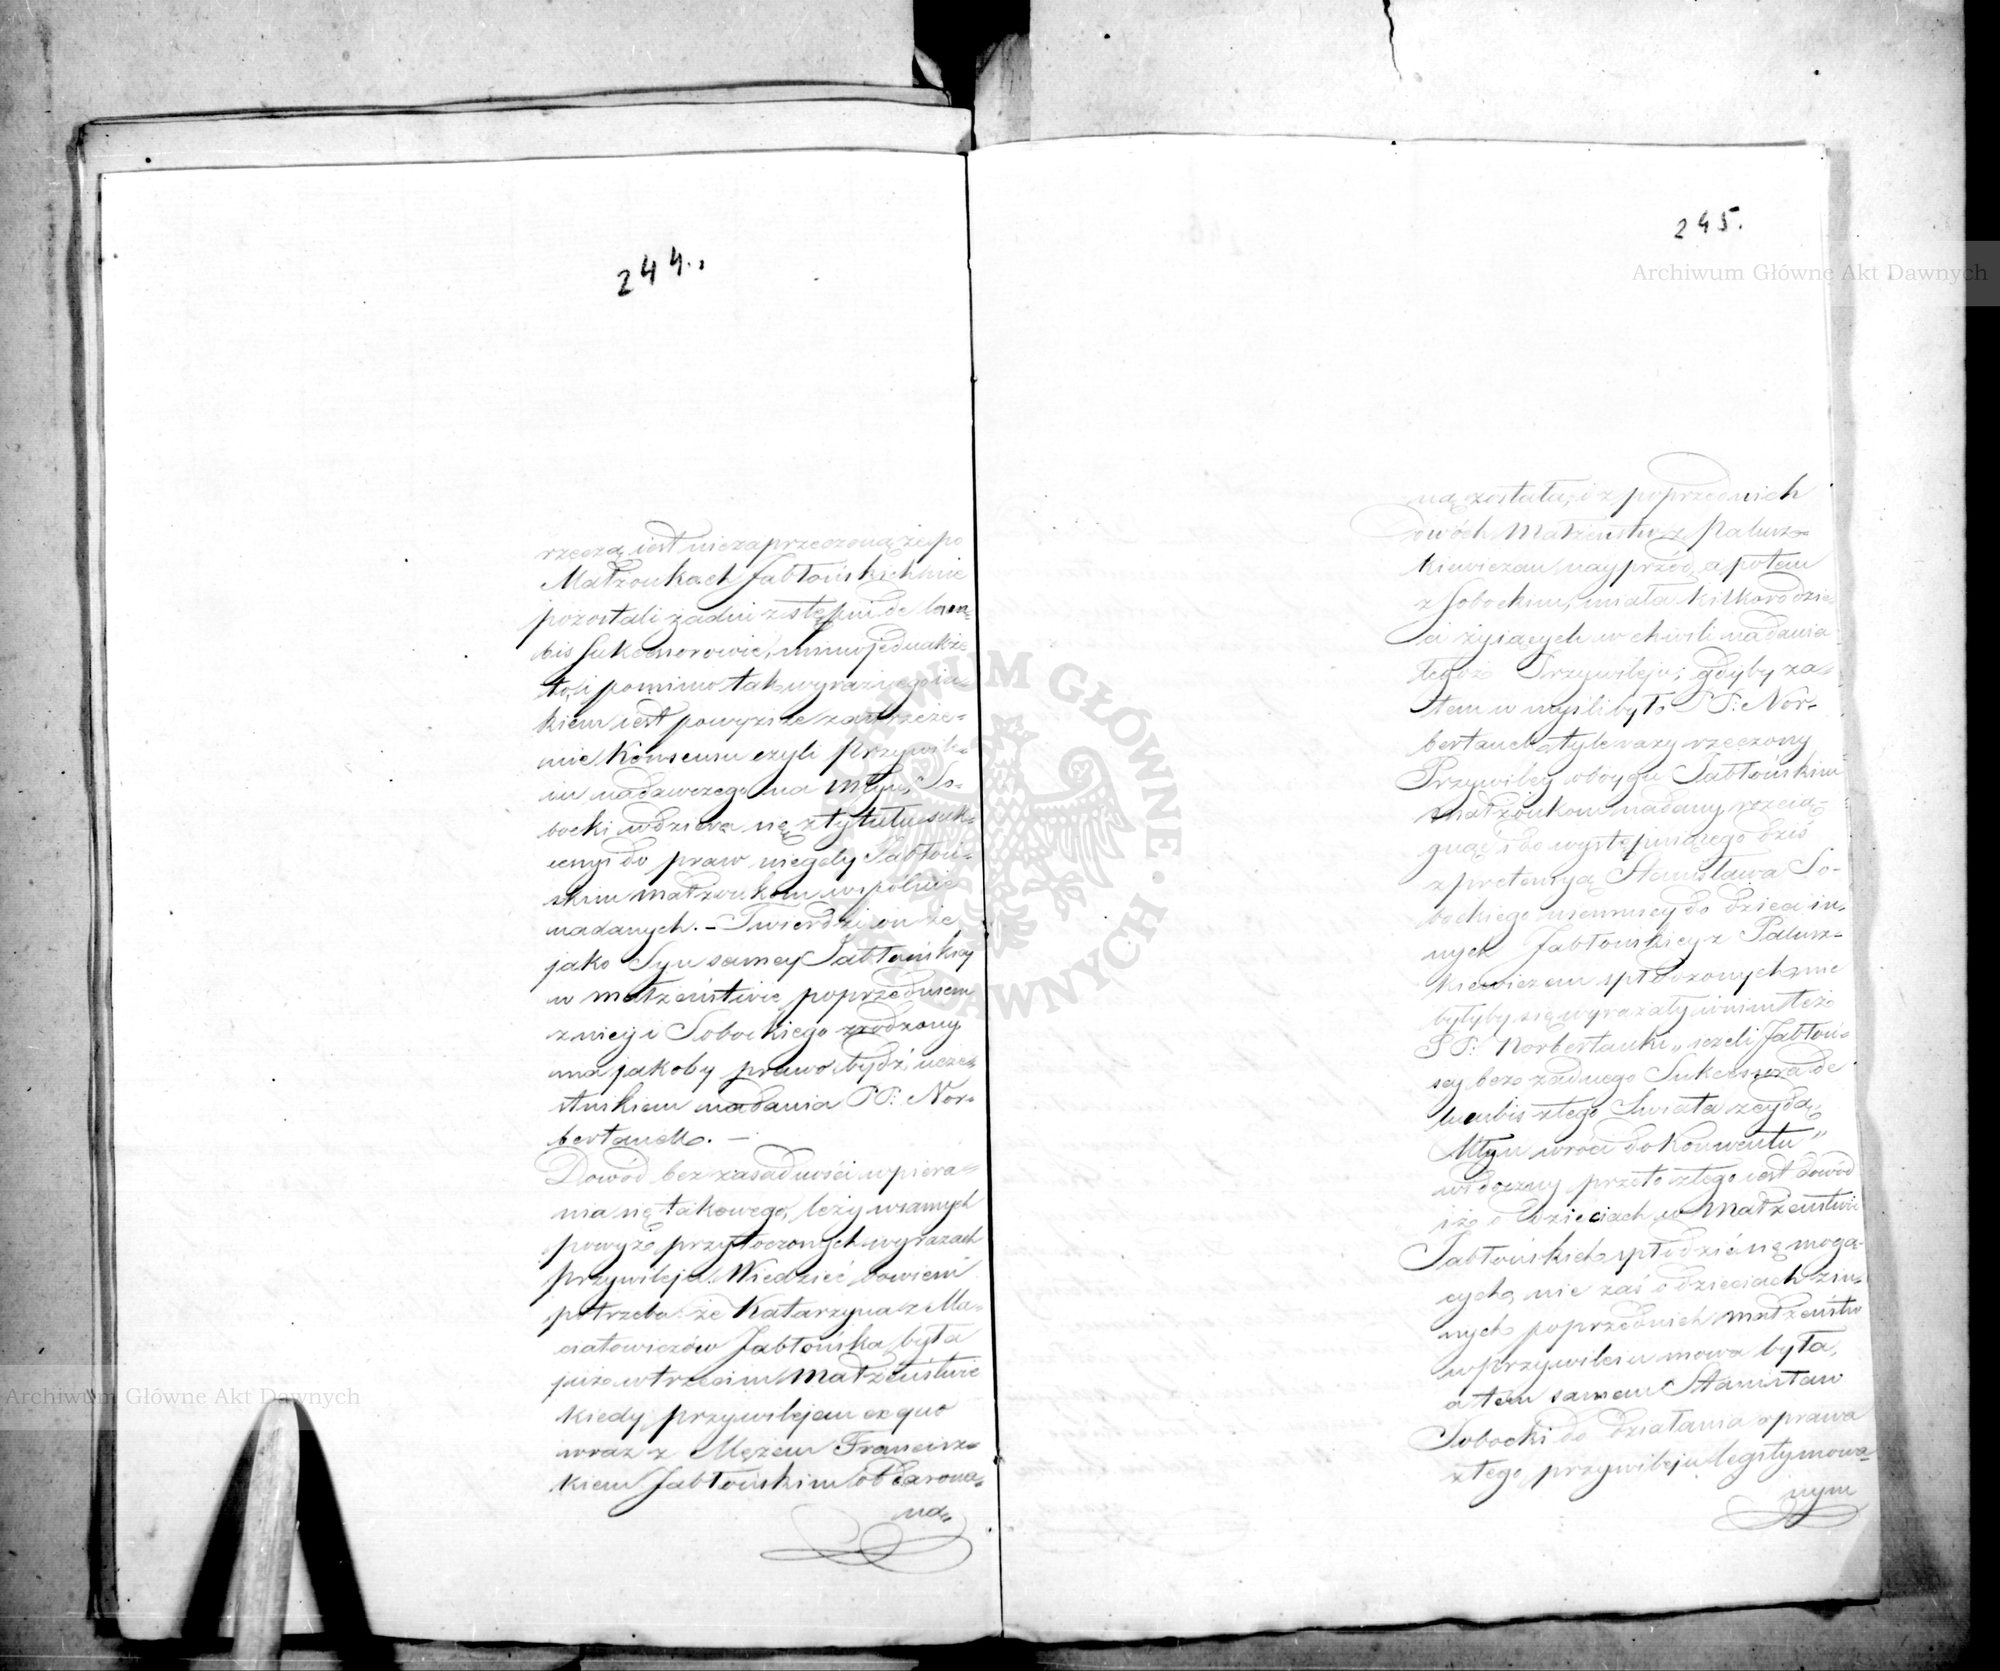 244.
rzeczą iest niezaprzeczoną że po
Małzonkach Jabłońskich nie
pozostali zadni zstępni de lum=
bis Sukcessorowie, mimo jednakże
to, i pomimo tak wyraznego ia=
kiem iest powyzsze zastrzeże=
nie Konsensu czyli Przywile=
iu nadawczego na Młyn, So=
bocki wdziera się z tytułu suk=
cessyi do praw niegdy Jabłoń=
skim małzonkom wspólnie
nadanych. – Twierdzi on że
jako Syn samey Jabłońskiey
w małzeństwie poprzedniem
z niey i Sobockiego zrodzony
ma jakoby prawo bydź ucze=
stnikiem nadania PP: Nor=
bertanek. –
Dowód bezzasadności wpiera=
nia się takowego, leży w samych
powyżo przytoczonych wyrazach
przywileju. Wiedzieć bowiem
potrzeba że Katarzyna z Ma=
ciatowiczów Jabłońska była
juże w trzecim Małżeństwie
kiedy przywilejem ex quo
wraz z Mężem Francisz=
kiem Jabłońskim obdarowa=
na=
245.
ną została, i z poprzednich
dwóch Małzeństw z Palusz=
kiewiczem nayprzód, a potem
z Sobockim, miała kilkoro dzie=
ci żyiących w chwili nadania
tegoż Przywileju; gdyby za=
tem w myśli było PP: Nor=
bertanek tylewazy rzeczony
Przywiley oboygu Jabłońskim
małzonkom nadany, rozcią=
gnąć i do występuiącego dziś
z pretensyą Stanisława So=
bockiego niemniey do dzieci in=
nych Jabłońskiey z Palusz=
kiewiczem spłodzonych, nie
byłyby się wyrażały w nim też
PP: Norbertanki „ieżeli Jabłoń=
scy bez żadnego Sukcessora de
lumbis z tego Swiata zeydą,
Młyn wróci do Konwentu”
widoczny przeto z tego iest dowód
iż o dzieciach w Małzeństwie
Jabłońskich spłodzić się mogą=
cych, nie zaś o dzieciach z in=
nych poprzednich małżeństw
w przywileiu mowa była,
a tem samem Stanisław
Sobocki do działania o prawa
z tego przywileju legitymowa=
nym
Archiwum Główne Akt Dawnych
Archiwum Główne Akt Dawnych
ARCHIWUM GŁÓWNE AKT DAWNYCH